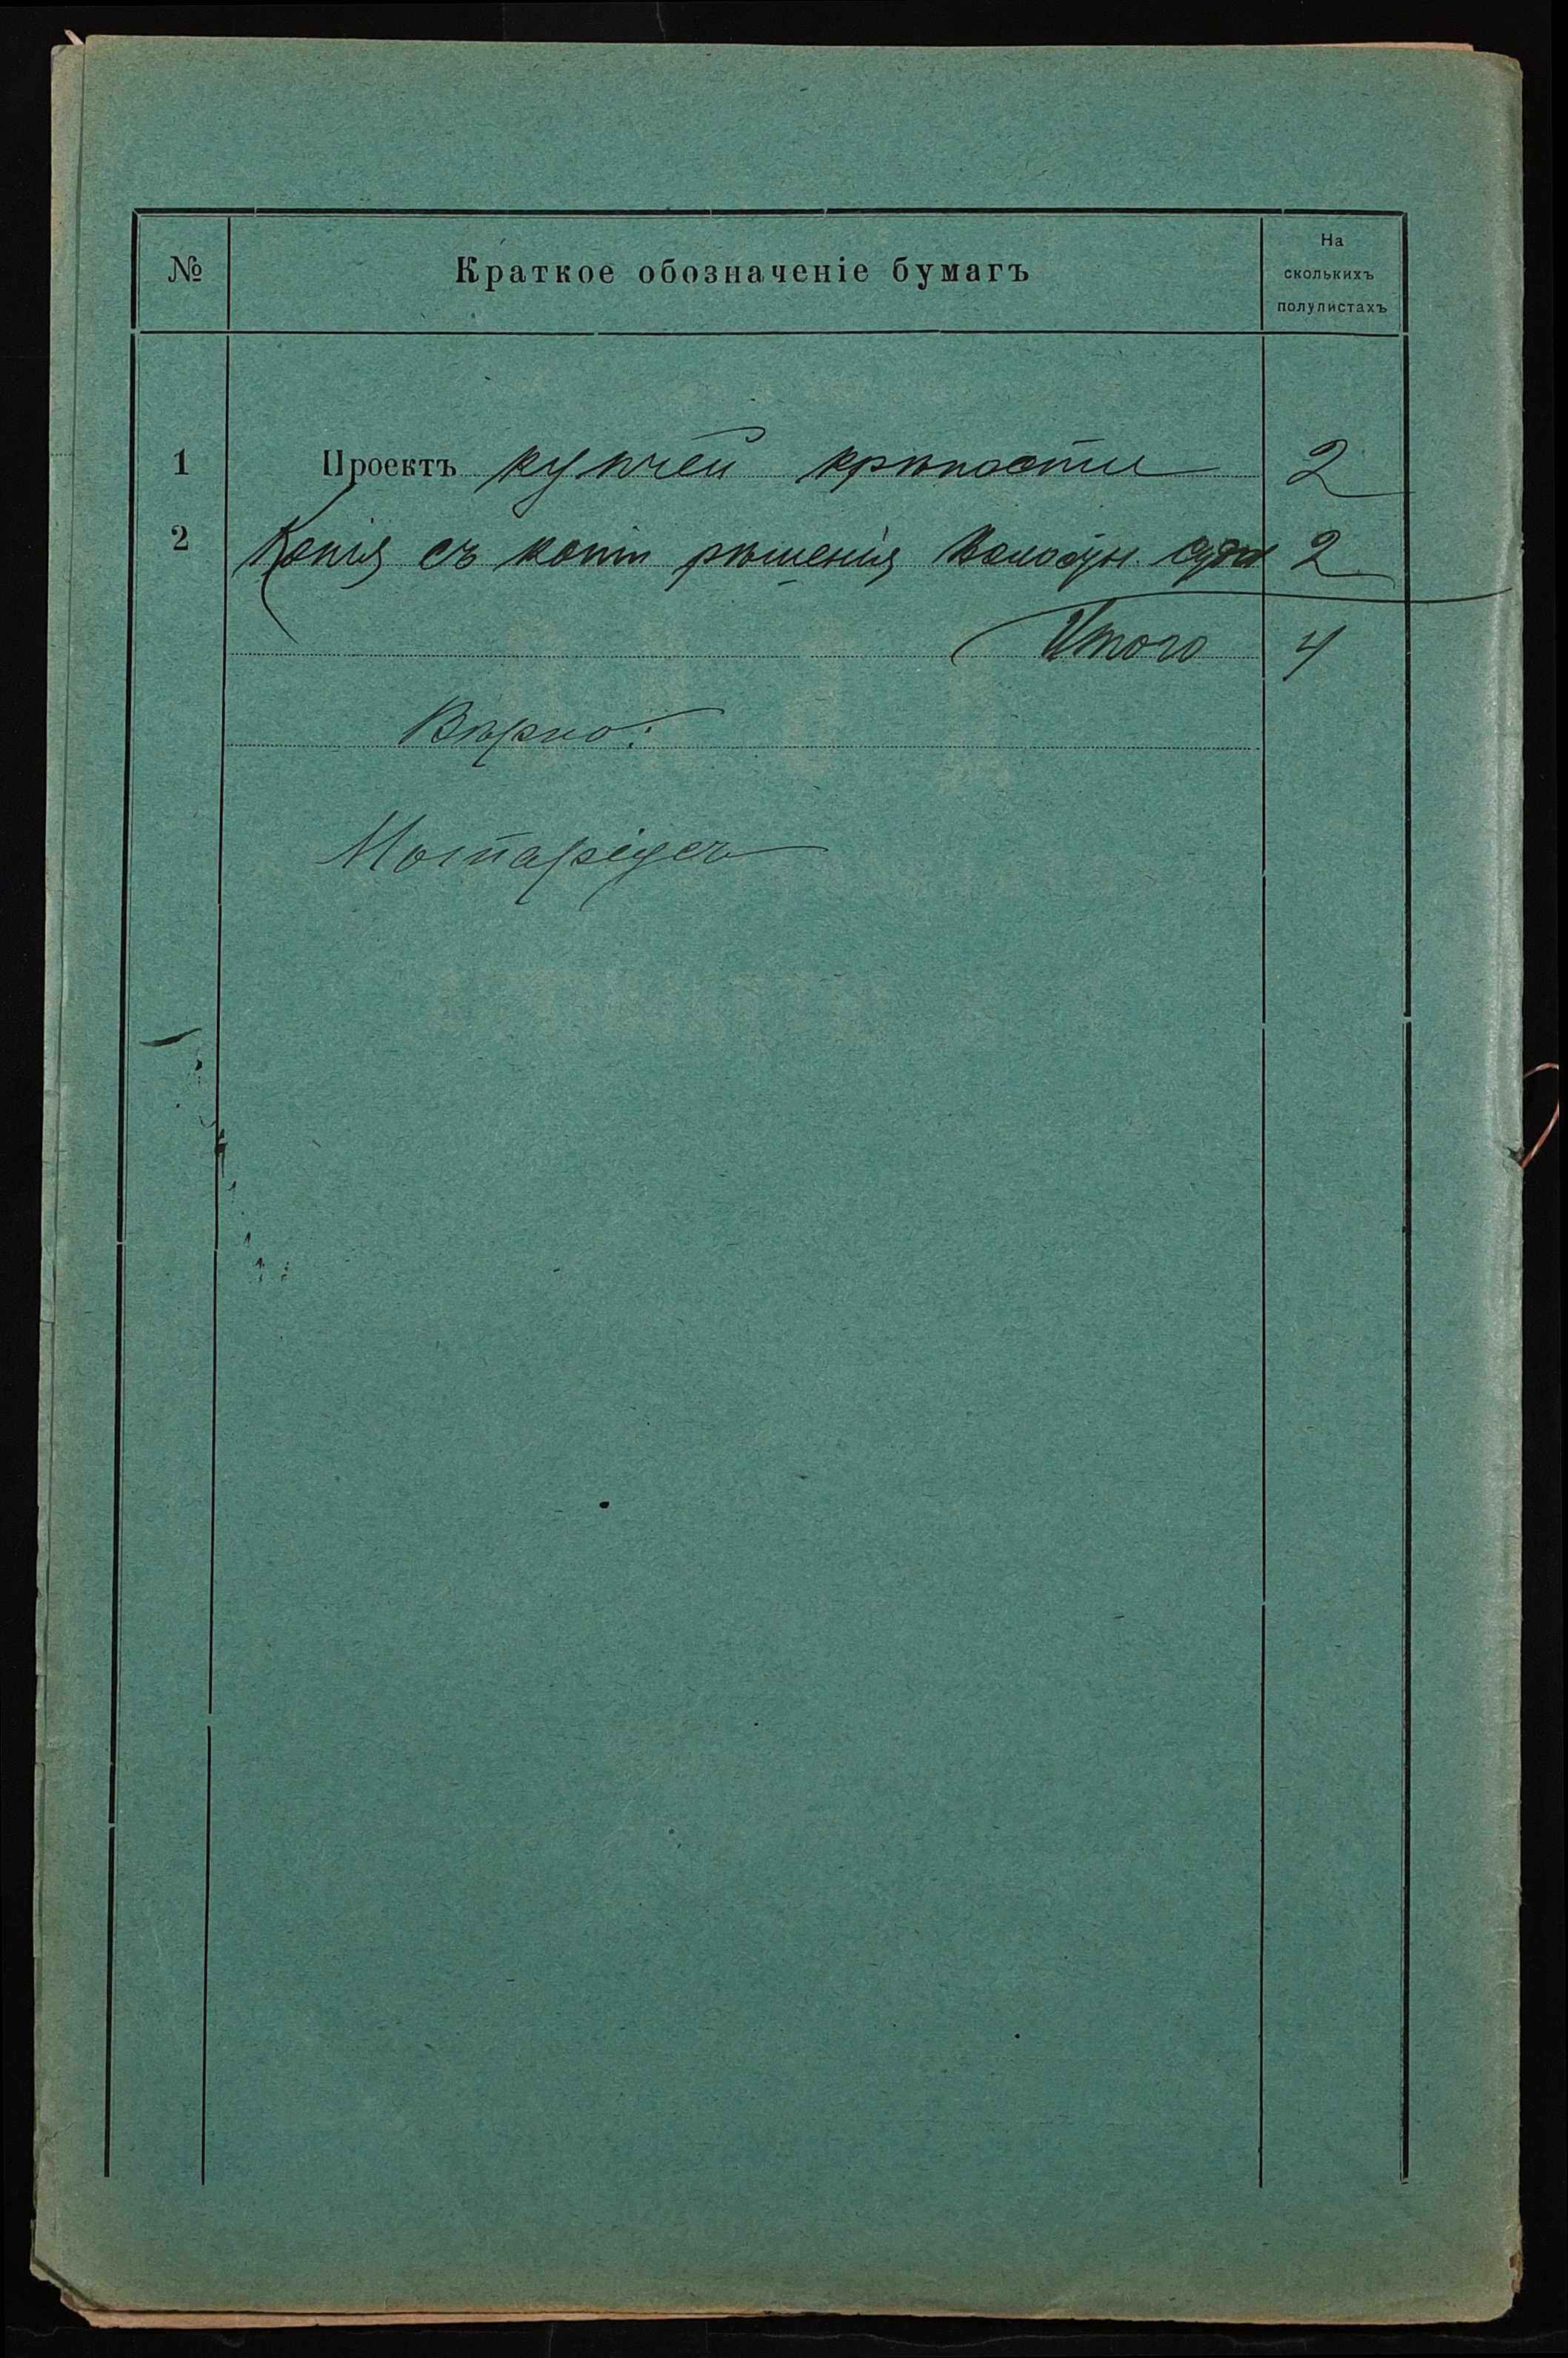 № Краткое обозначеніе бумагъ На сколькихъ полулистахъ
1 Проектъ купчей крѣпости 2
2 Копія съ копіи рѣшенія Волостн. суда 2
Итого 4
Вѣрно:
Нотаріусъ